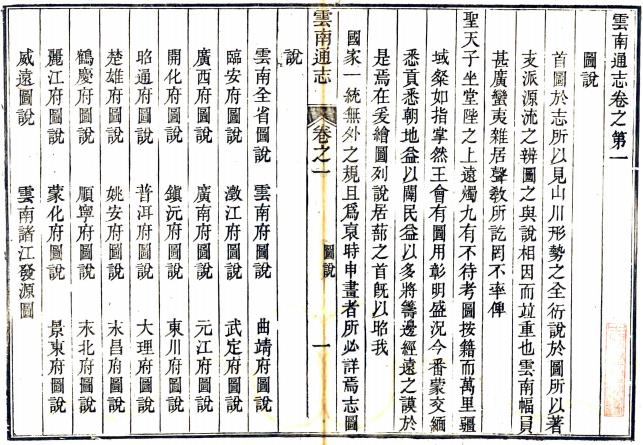 雲南通志卷之第一
圖說
首圖於志所以見山川形勢之全衍說於圖所以著
支派源流之辨圖之與說相因而竝重也雲南幅員
甚廣蠻夷雜居聲敎所訖罔不率俾
聖天子坐堂陛之上遠燭九有不待考圖按籍而萬里疆
域粲如指掌然王會有圖用彰明盛況今番蒙交緬
悉貢悉朝地益以闢民益以多將籌邊經遠之謨於
是焉在爰繪圖列說居茲之首旣以昭我
國家一統無外之規且爲裒時申畫者所必詳焉志圖
雲南通志 卷之一 圖說 一
說
雲南全省圖說 雲南府圖說 曲靖府圖說
臨安府圖說 澂江府圖說 武定府圖說
廣西府圖說 廣南府圖說 元江府圖說
開化府圖說 鎭沅府圖說 東川府圖說
昭通府圖說 普洱府圖說 大理府圖說
楚雄府圖說 姚安府圖說 永昌府圖說
鶴慶府圖說 順寧府圖說 永北府圖說
麗江府圖說 蒙化府圖說 景東府圖說
威遠圖說 雲南諸江發源圖